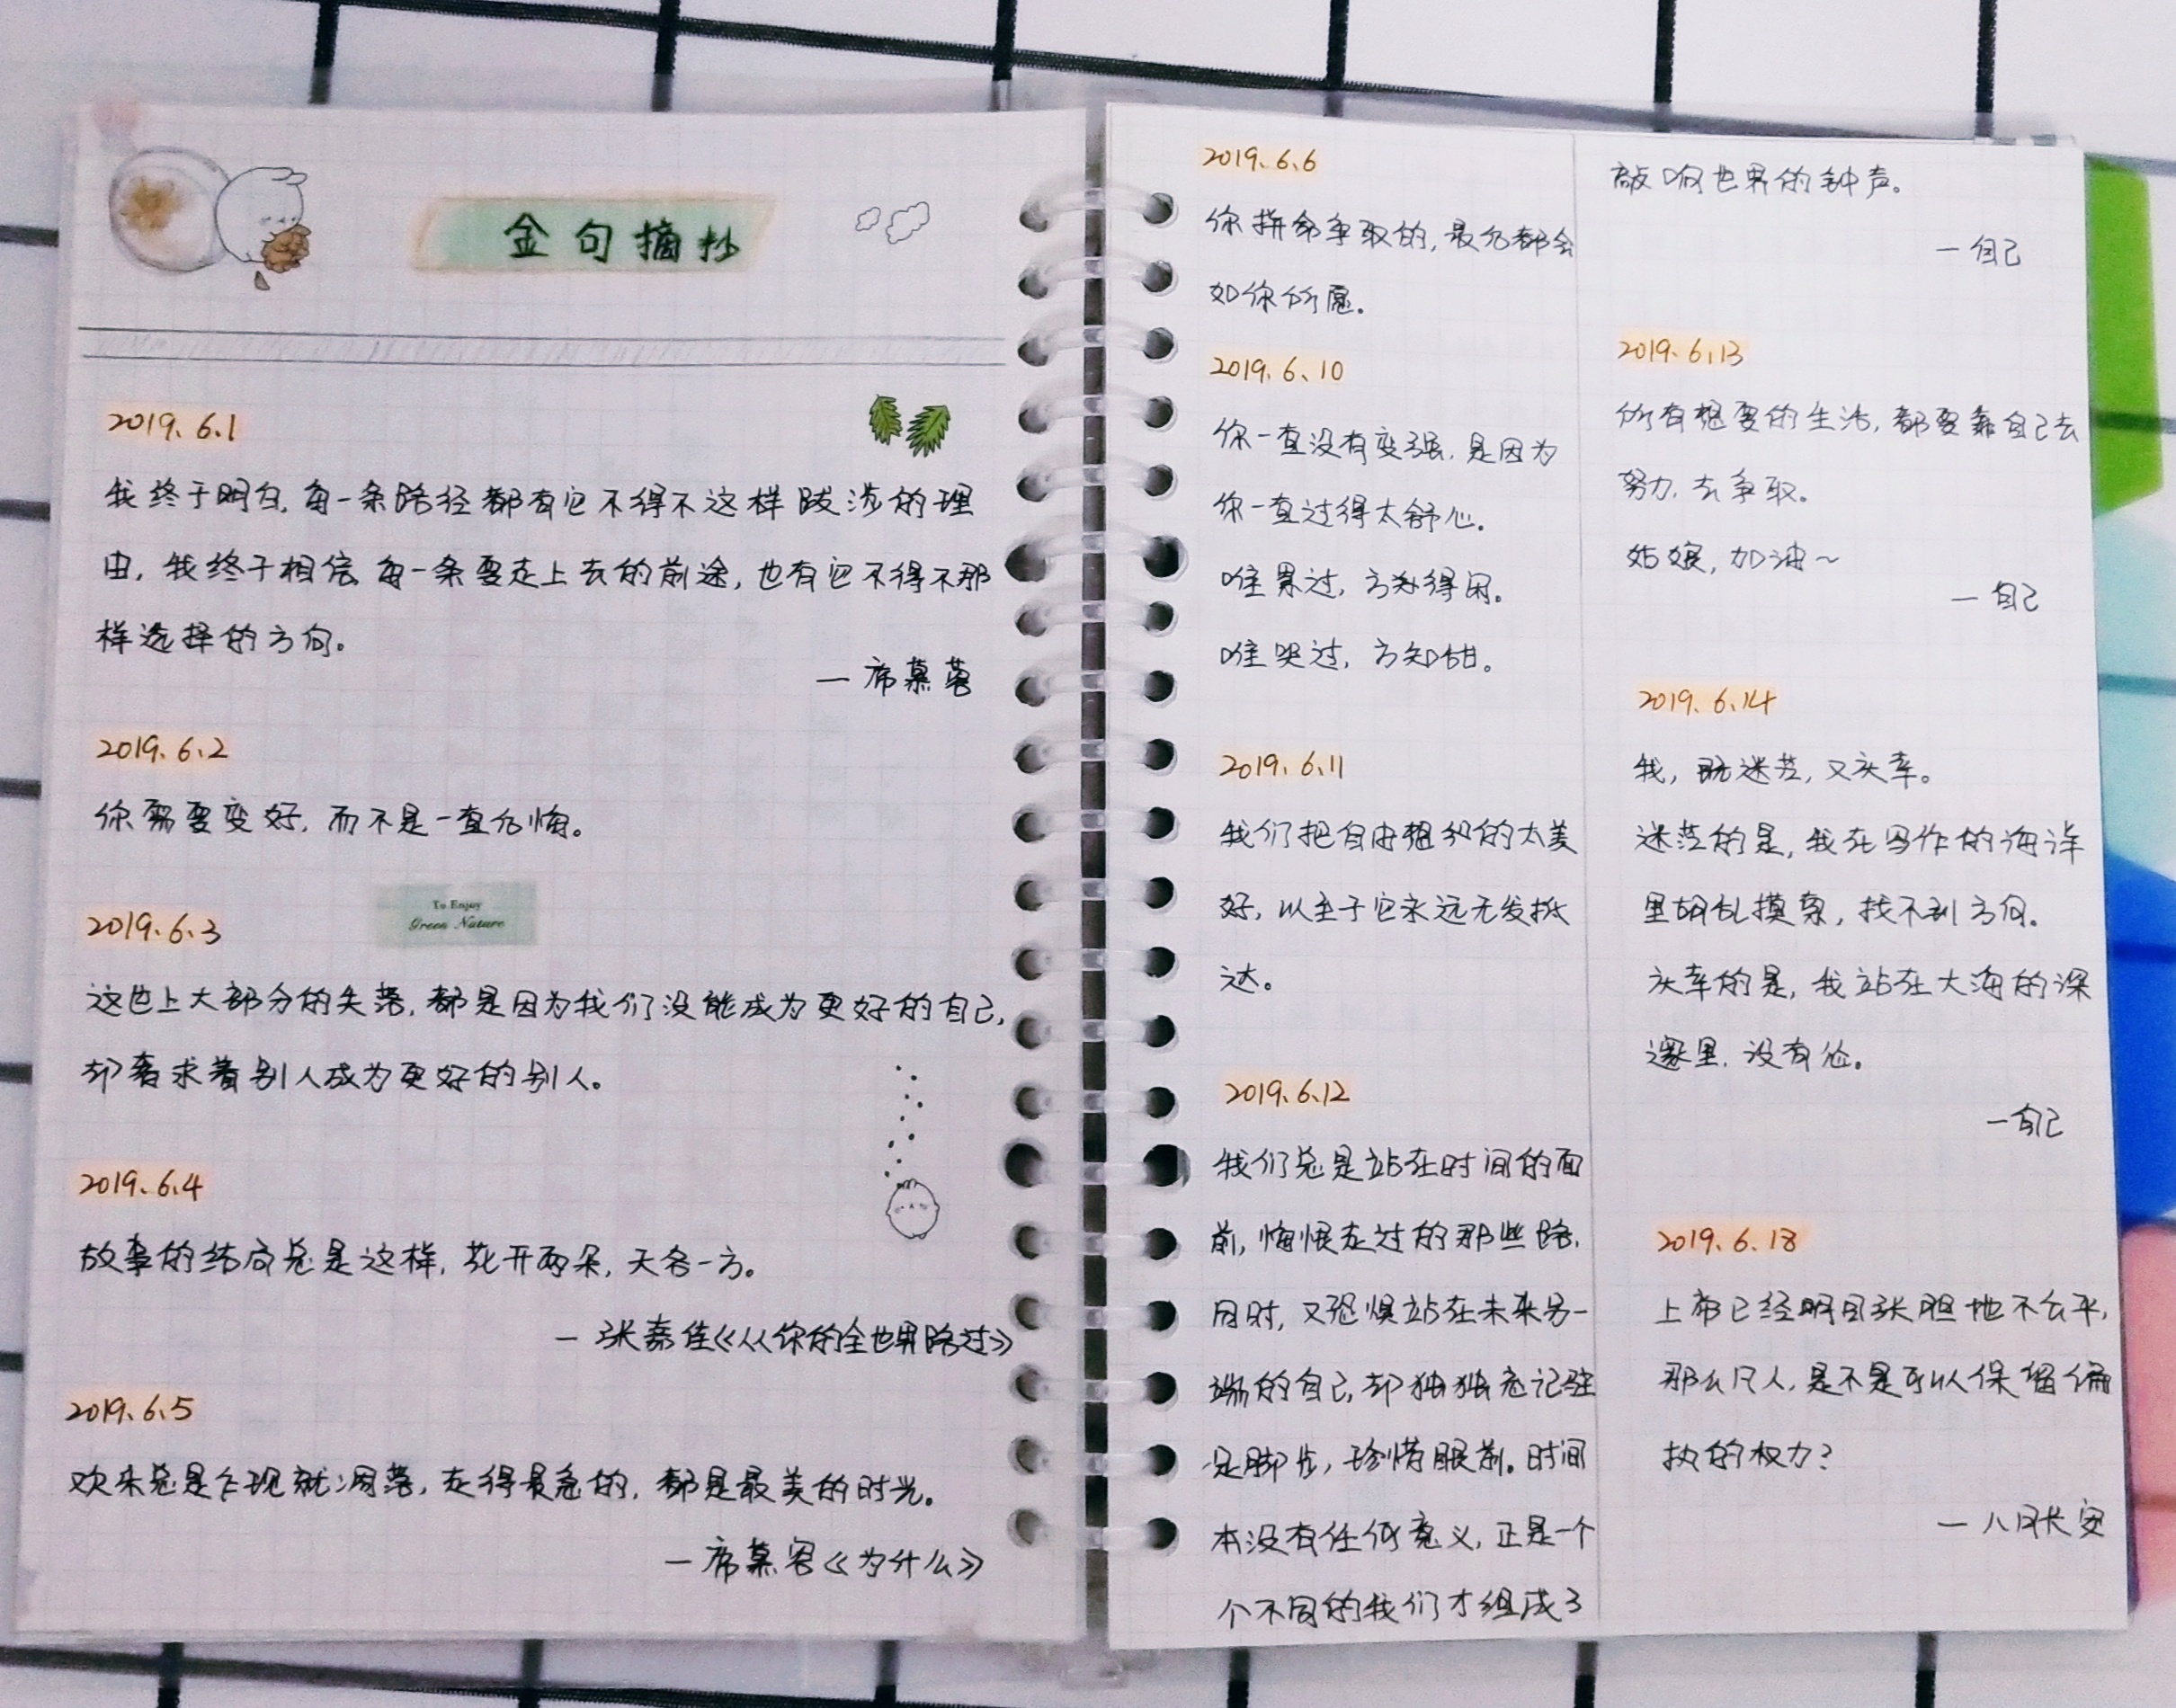 金句摘抄
2019.6.1
我终于明白,每一条路径都有它不得不这样跋涉的理
由,我终于相信,每一条要走上去的前途,也有它不得不那
样选择的方向。
— 席慕蓉
2019.6.2
你需要变好,而不是一直后悔。
To Enjoy
Green Nature
2019.6.3
这世上大部分的失落,都是因为我们没能成为更好的自己,
却奢求着别人成为更好的别人。
2019.6.4
故事的结局总是这样,花开两朵,天各一方。
— 张嘉佳《从你的全世界路过》
2019.6.5
欢乐总是乍现就凋落,走得最急的,都是最美的时光。
— 席慕容《为什么》
2019.6.6
你拼命争取的,最后都会
如你所愿。
2019.6.10
你一直没有变强,是因为
你一直过得太舒心。
唯累过,方知得闲。
唯哭过,方知甜。
2019.6.11
我们把自由想的太美
好,以至于它永远无发抵
达。
2019.6.12
我们总是站在时间的面
前,悔恨走过的那些路,
同时,又恐惧站在未来另一
端的自己,却独独忘记驻
足脚步,珍惜眼前。时间
本没有任何意义,正是一个
个不同的我们才组成了
敲响世界的钟声。
— 自己
2019.6.13
所有想要的生活,都要靠自己去
努力,去争取。
姑娘,加油~
— 自己
2019.6.14
我,既迷茫,又庆幸。
迷茫的是,我在写作的海洋
里胡乱摸索,找不到方向。
庆幸的是,我站在大海的深
邃里,没有怂。
— 自己
2019.6.18
上帝已经明目张胆地不公平,
那么凡人,是不是可以保留偏
执的权力?
— 八月长安